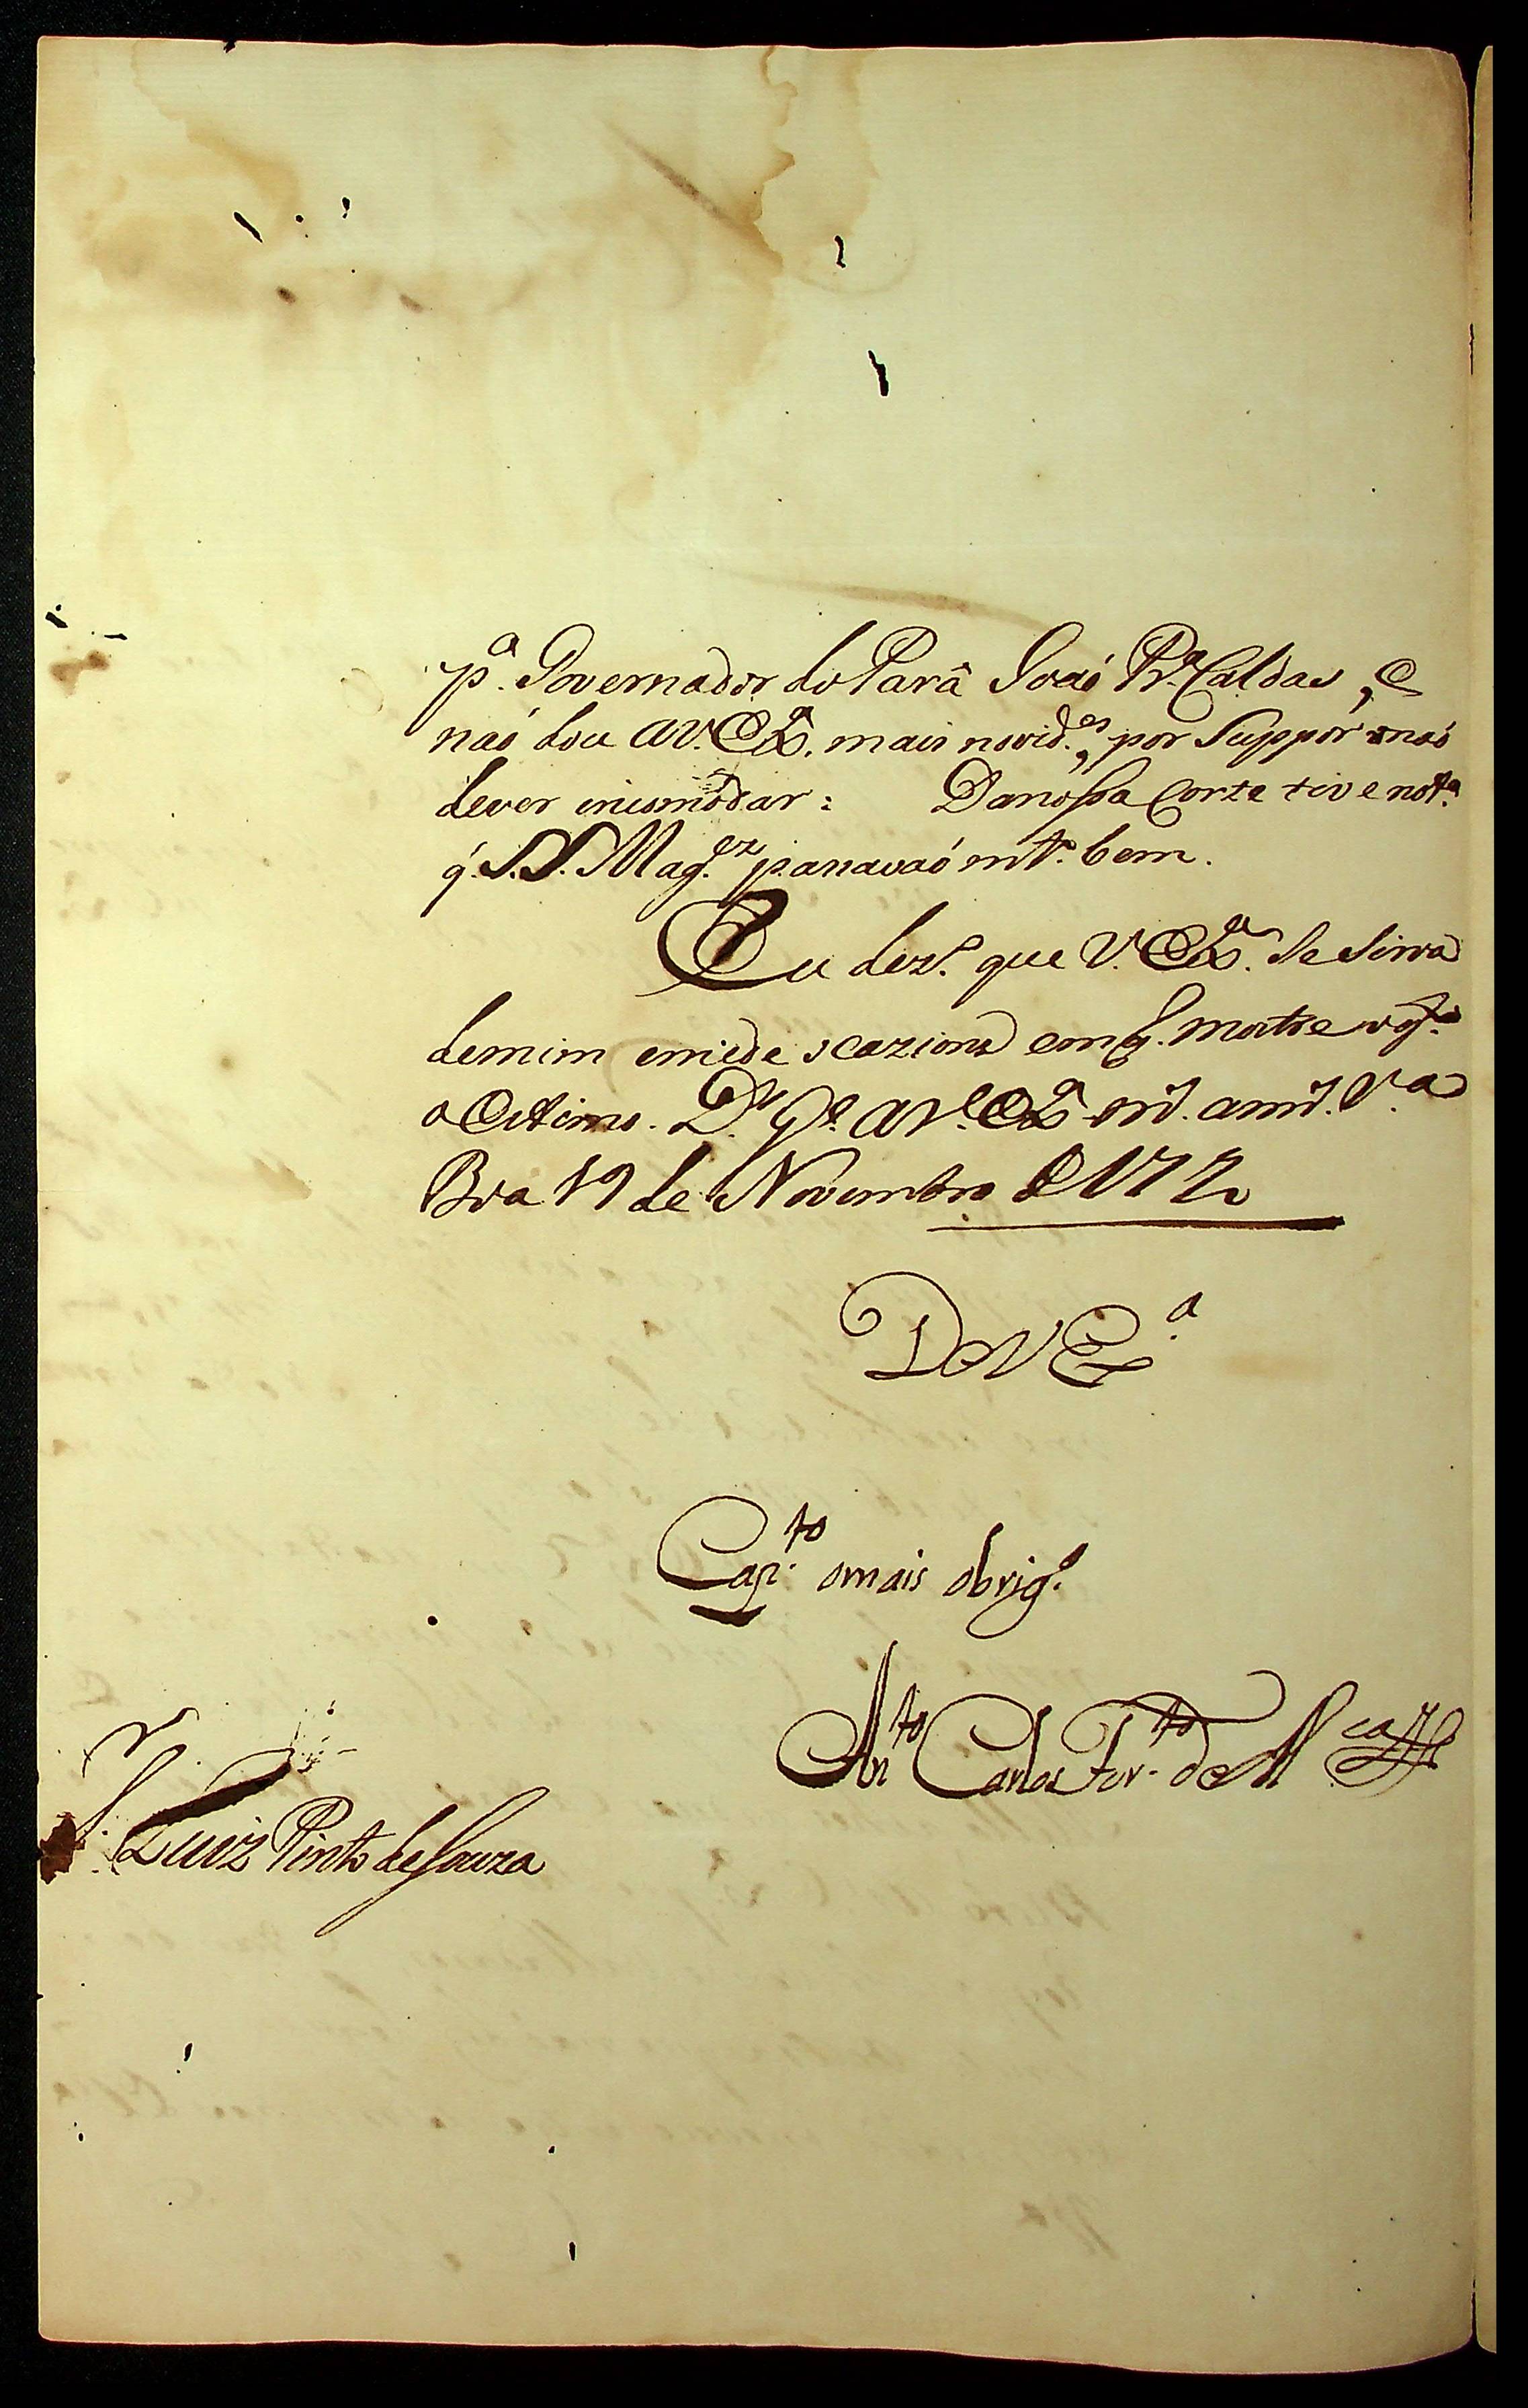 p.ª Governador do Parâ João Pr.ª Caldas, e
naõ dou a V. Ex.ª mais novid.es, por Suppôr o naõ
dever incomodar: Danossa Corte tive not.ª
q́. S.S. Mag.ez passavaõ mt.º bem.
Eu dez.º que V. Ex.ª Se Sirva
demim emede occazions em q. mostre
o Estimo. D.s g.e a V. Ex.ª m.s ann.s V.ª
B.ª 19 de Novembro de 1772
De V Ex.ª
Cap.to omais obrig.º
An.to Carlos Fur.do de M.ça
S.r Luiz Pinto de Souza